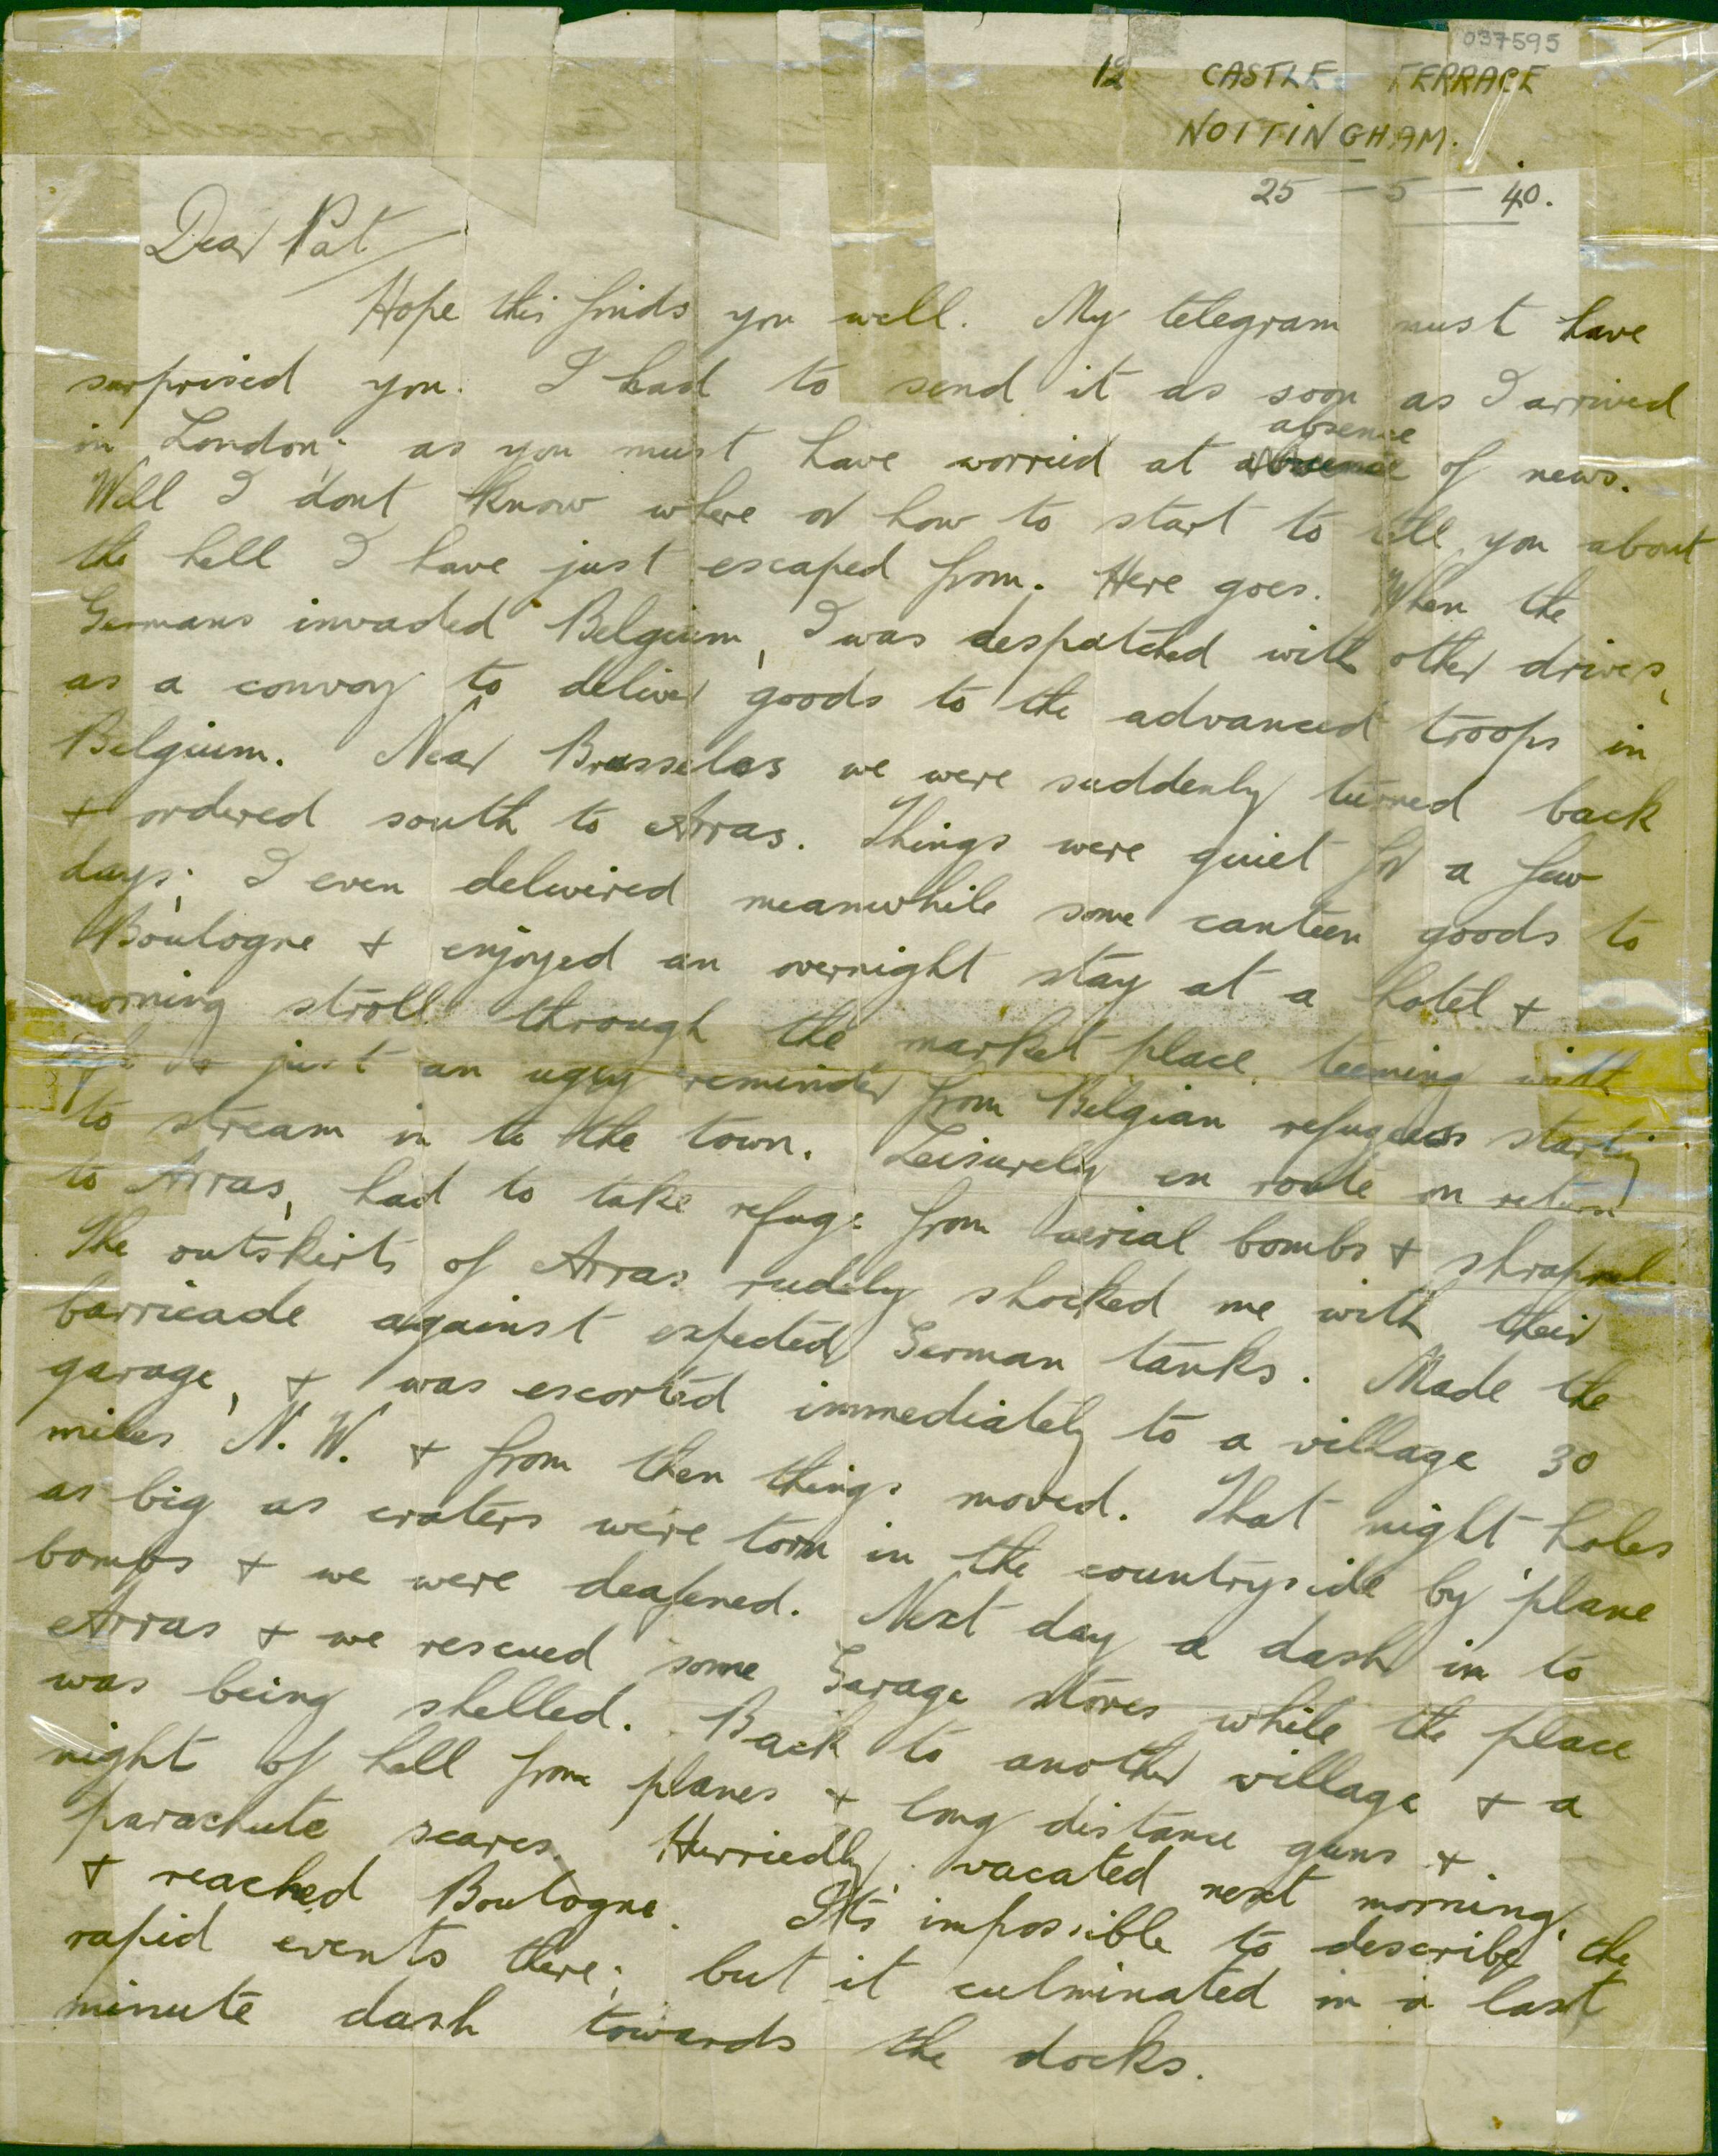 037595
12 CASTLE TERRACE
NOTTINGHAM.
25 - 5 - 40.
Dear Pat
Hope this finds you well. My telegram must have
surprised you. I had to send it as soon as I arrived
in London; as you must have worried at absence of news.
Well I don't know where or how to start to tell you about
the hell I have just escaped from. Here goes. When the
Germans invaded Belgium, I was despatched with other drivers,
as a convoy to deliver goods to the advanced troops in
Belgium. Near Brussels we were suddenly turned back
+ ordered south to Arras. Things were quiet for a few
days; I even delivered meanwhile some canteen goods to
Boulogne + enjoyed an overnight stay at a hotel +
morning stroll through the market place teeming with
life + just an ugly reminder from Belgian refugees starting
to stream in to the town. Leisurely en route on return
to Arras, had to take refuge from aerial bombs + shrapnel.
The outskirts of Arras rudely shocked me with their
barricade against expected German tanks. Made the
garage, + was escorted immediately to a village 30
miles N.W. + from then things moved. That night holes
as big as craters were torn in the countryside by 'plane
bombs + we were deafened. Next day a dash in to
Arras + we rescued some Garage stores while the place
was being shelled. Back to another village + a
night of hell from planes + long distance guns +
parachute scares. Hurriedly vacated next morning,
+ reached Boulogne. It's impossible to describe the
rapid events there; but it culminated in a last
minute dash towards the docks.